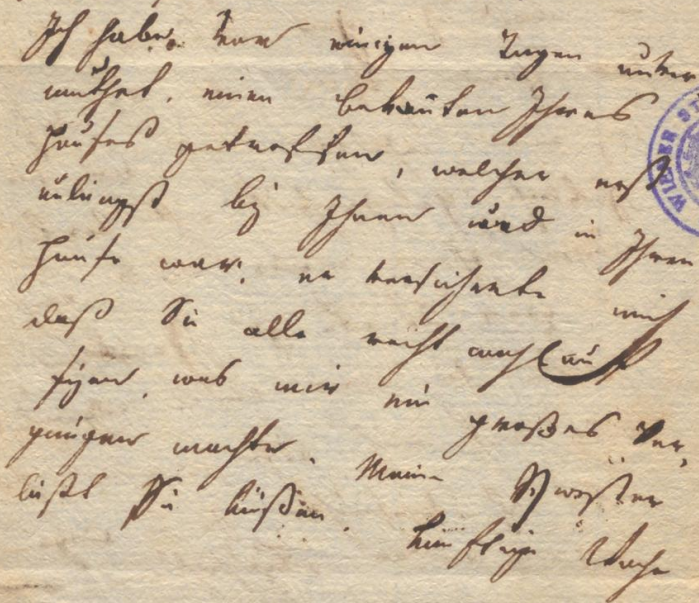 Ich habe vor einigen Tagen unver
muthet, einen bekanten Ihres
Hauses getroffen, welcher erst
unlängst bey Ihnen und in Ihren
Hause war, er versicherte mich
daß Sie alle recht wohl auf
seyen, was mir ein großes Ver,
gnügen machte. Meine Schwester
läßt Sie küßen. künftige Woche
WIENER S